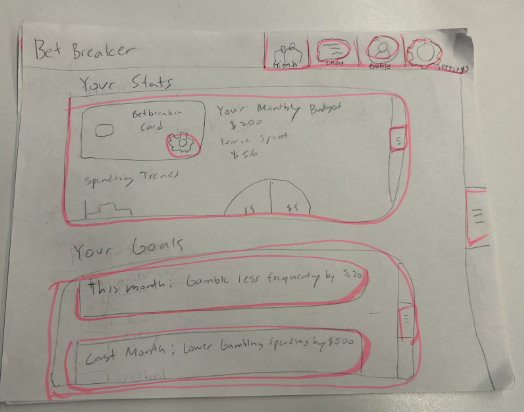 Bet Breaker
Chat
Profile
Settings
Your Stats
Betbreaker
Card
Your Monthly Budget
$200
Spent
$56
Spending Trends
$$
$$
Your Goals
This month: Gamble less frequently by %20
Last Month: Lower Gambling spending by $500